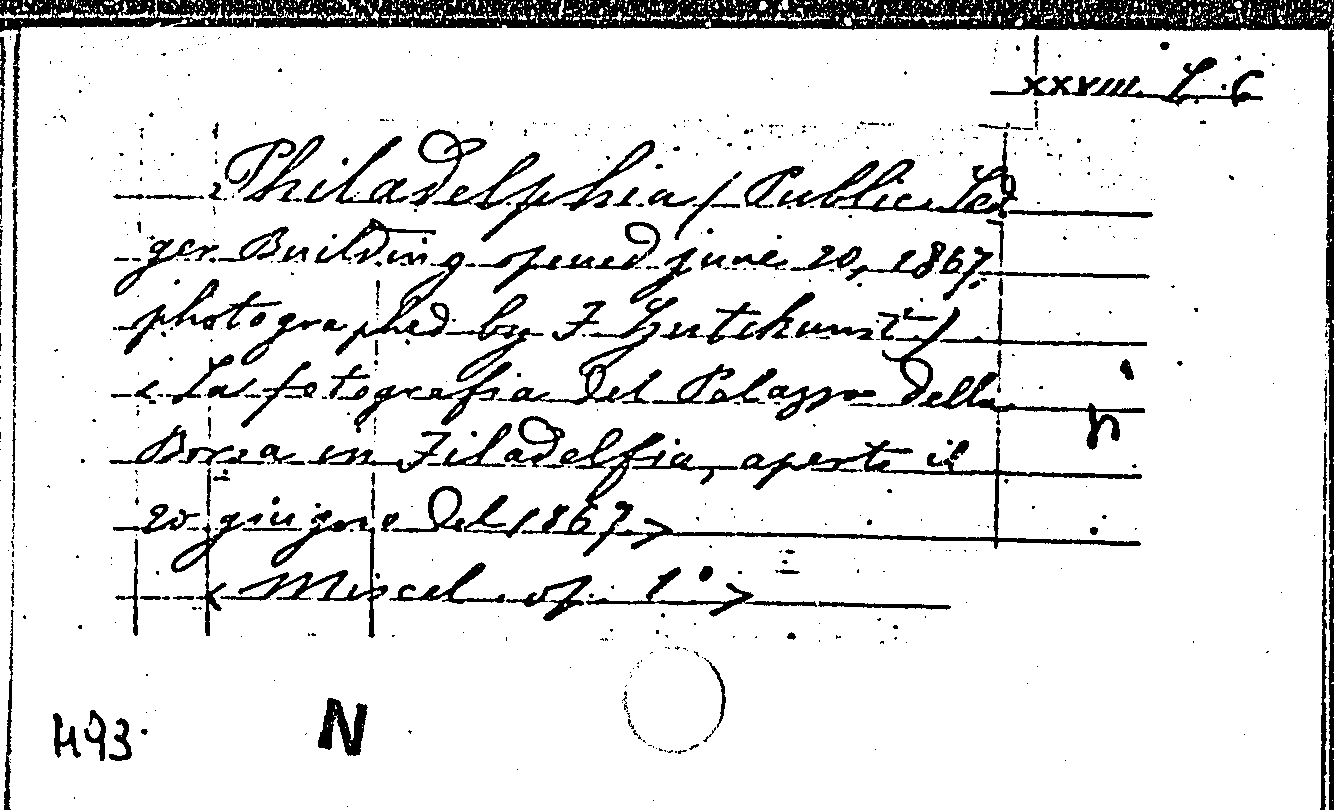 XXVIII. L. 6
Philadelphia (Public Led
ger Building opened june 20, 1867,
photographed by F Gutekunst)
< La fotografia del Palazzo della
Borsa in Filadelfia, aperto il
20 giugno del 1867 >
< Miscel. op. 1° >
h
493.
N